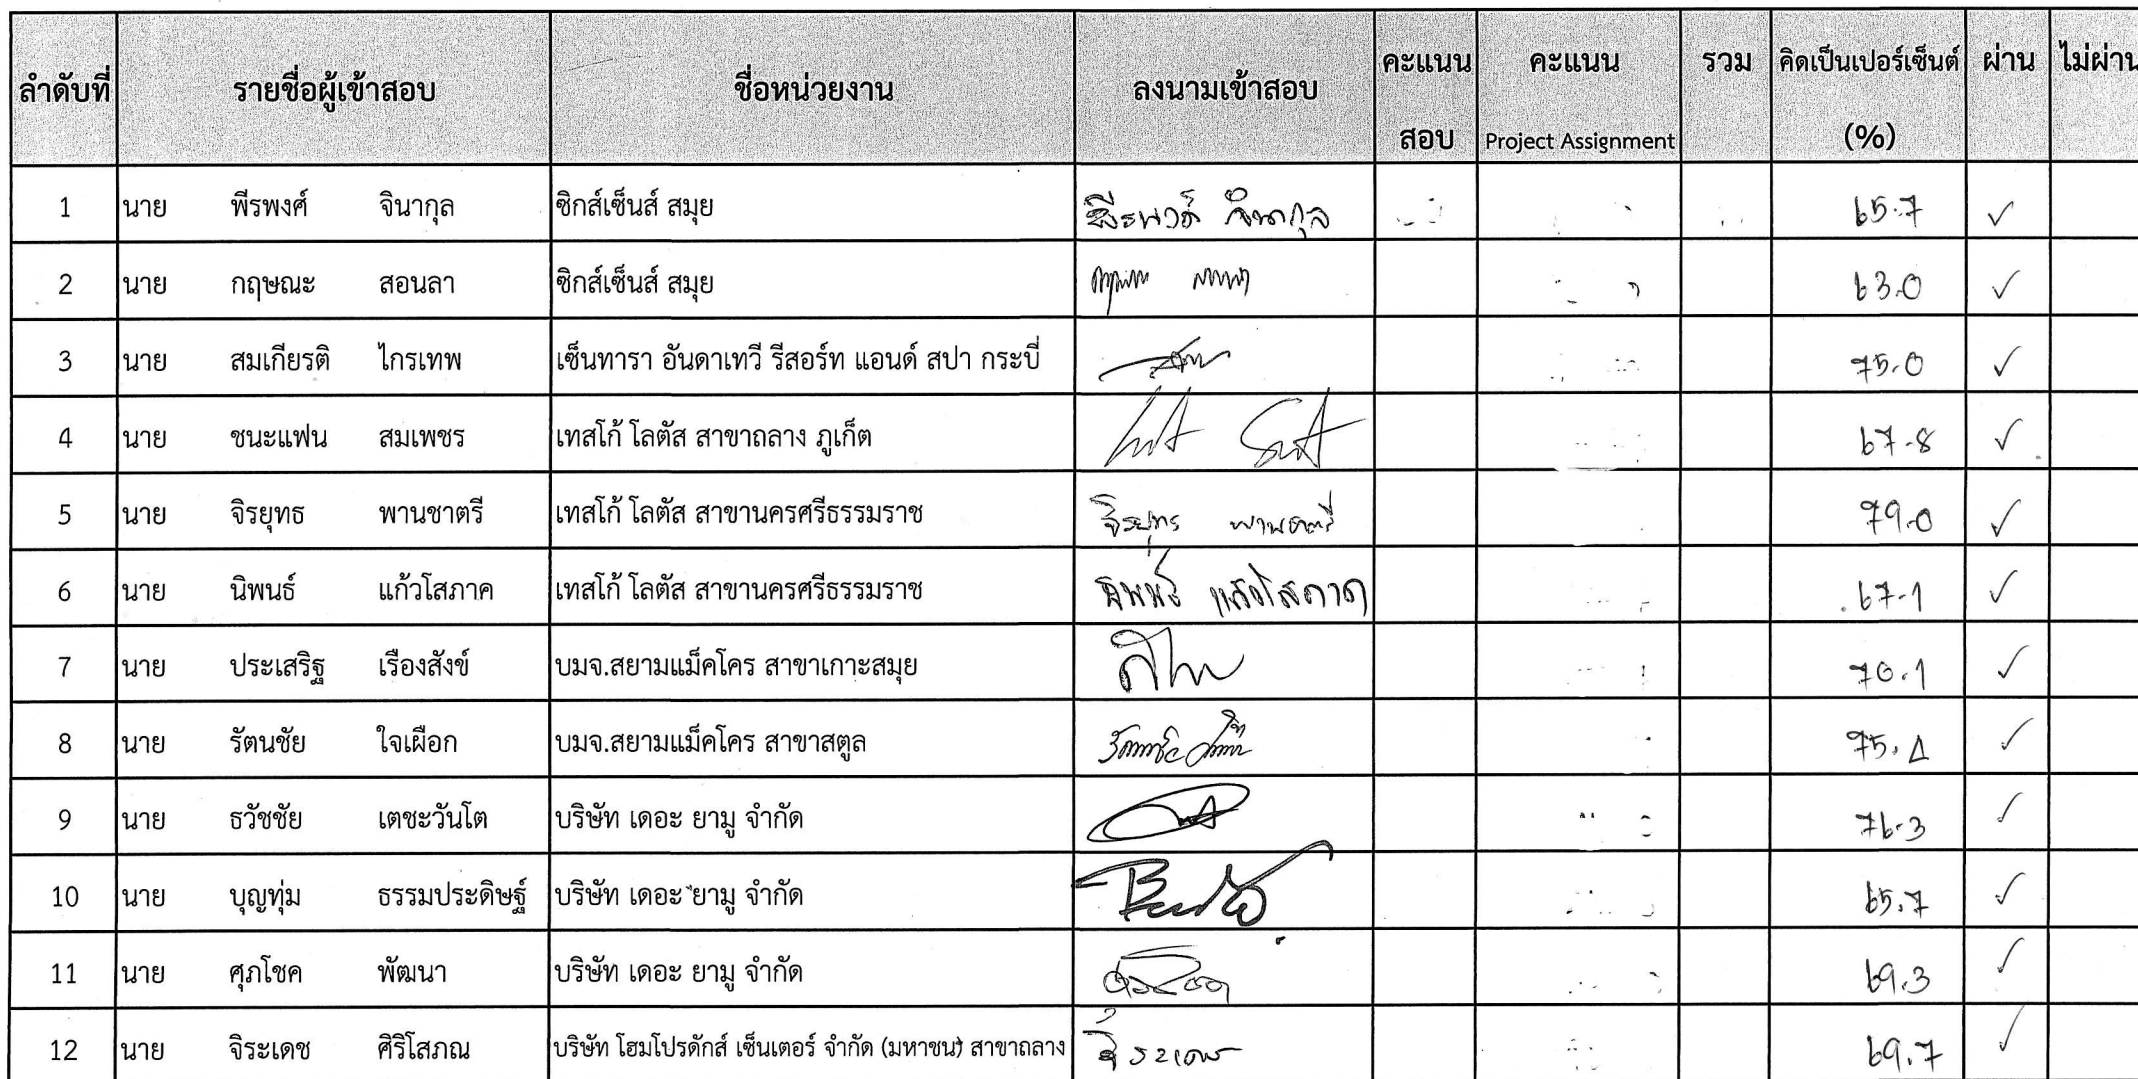 ลำดับที่ รายชื่อผู้เข้าสอบ ชื่อหน่วยงาน ลงนามเข้าสอบ คะแนน คะแนน รวม คิดเป็นเปอร์เซ็นต์ ผ่าน ไม่ผ่าน
สอบ Project Assignment (%)
1 นาย พีรพงศ์ จินากุล ซิกส์เซ็นส์ สมุย พีรพงศ์ จินากุล 65.7 ✓
2 นาย กฤษณะ สอนลา ซิกส์เซ็นส์ สมุย 63.0 ✓
3 นาย สมเกียรติ ไกรเทพ เซ็นทารา อันดาเทวี รีสอร์ท แอนด์ สปา กระบี่ 75.0 ✓
4 นาย ชนะแฟน สมเพชร เทสโก้ โลตัส สาขาถลาง ภูเก็ต 67.8 ✓
5 นาย จิรยุทธ พานชาตรี เทสโก้ โลตัส สาขานครศรีธรรมราช จิรยุทธ พานชาตรี 79.0 ✓
6 นาย นิพนธ์ แก้วโสภาค เทสโก้ โลตัส สาขานครศรีธรรมราช นิพนธ์ แก้วโสภาค 67.1 ✓
7 นาย ประเสริฐ เรืองสังข์ บมจ.สยามแม็คโคร สาขาเกาะสมุย 70.1 ✓
8 นาย รัตนชัย ใจเผือก บมจ.สยามแม็คโคร สาขาสตูล 75.4 ✓
9 นาย ธวัชชัย เตชะวันโต บริษัท เดอะ ยามู จำกัด 76.3 ✓
10 นาย บุญทุ่ม ธรรมประดิษฐ์ บริษัท เดอะ ยามู จำกัด 65.7 ✓
11 นาย ศุภโชค พัฒนา บริษัท เดอะ ยามู จำกัด 69.3 ✓
12 นาย จิระเดช ศิริโสภณ บริษัท โฮมโปรดักส์ เซ็นเตอร์ จำกัด (มหาชน) สาขาถลาง จิระเดช 69.7 ✓